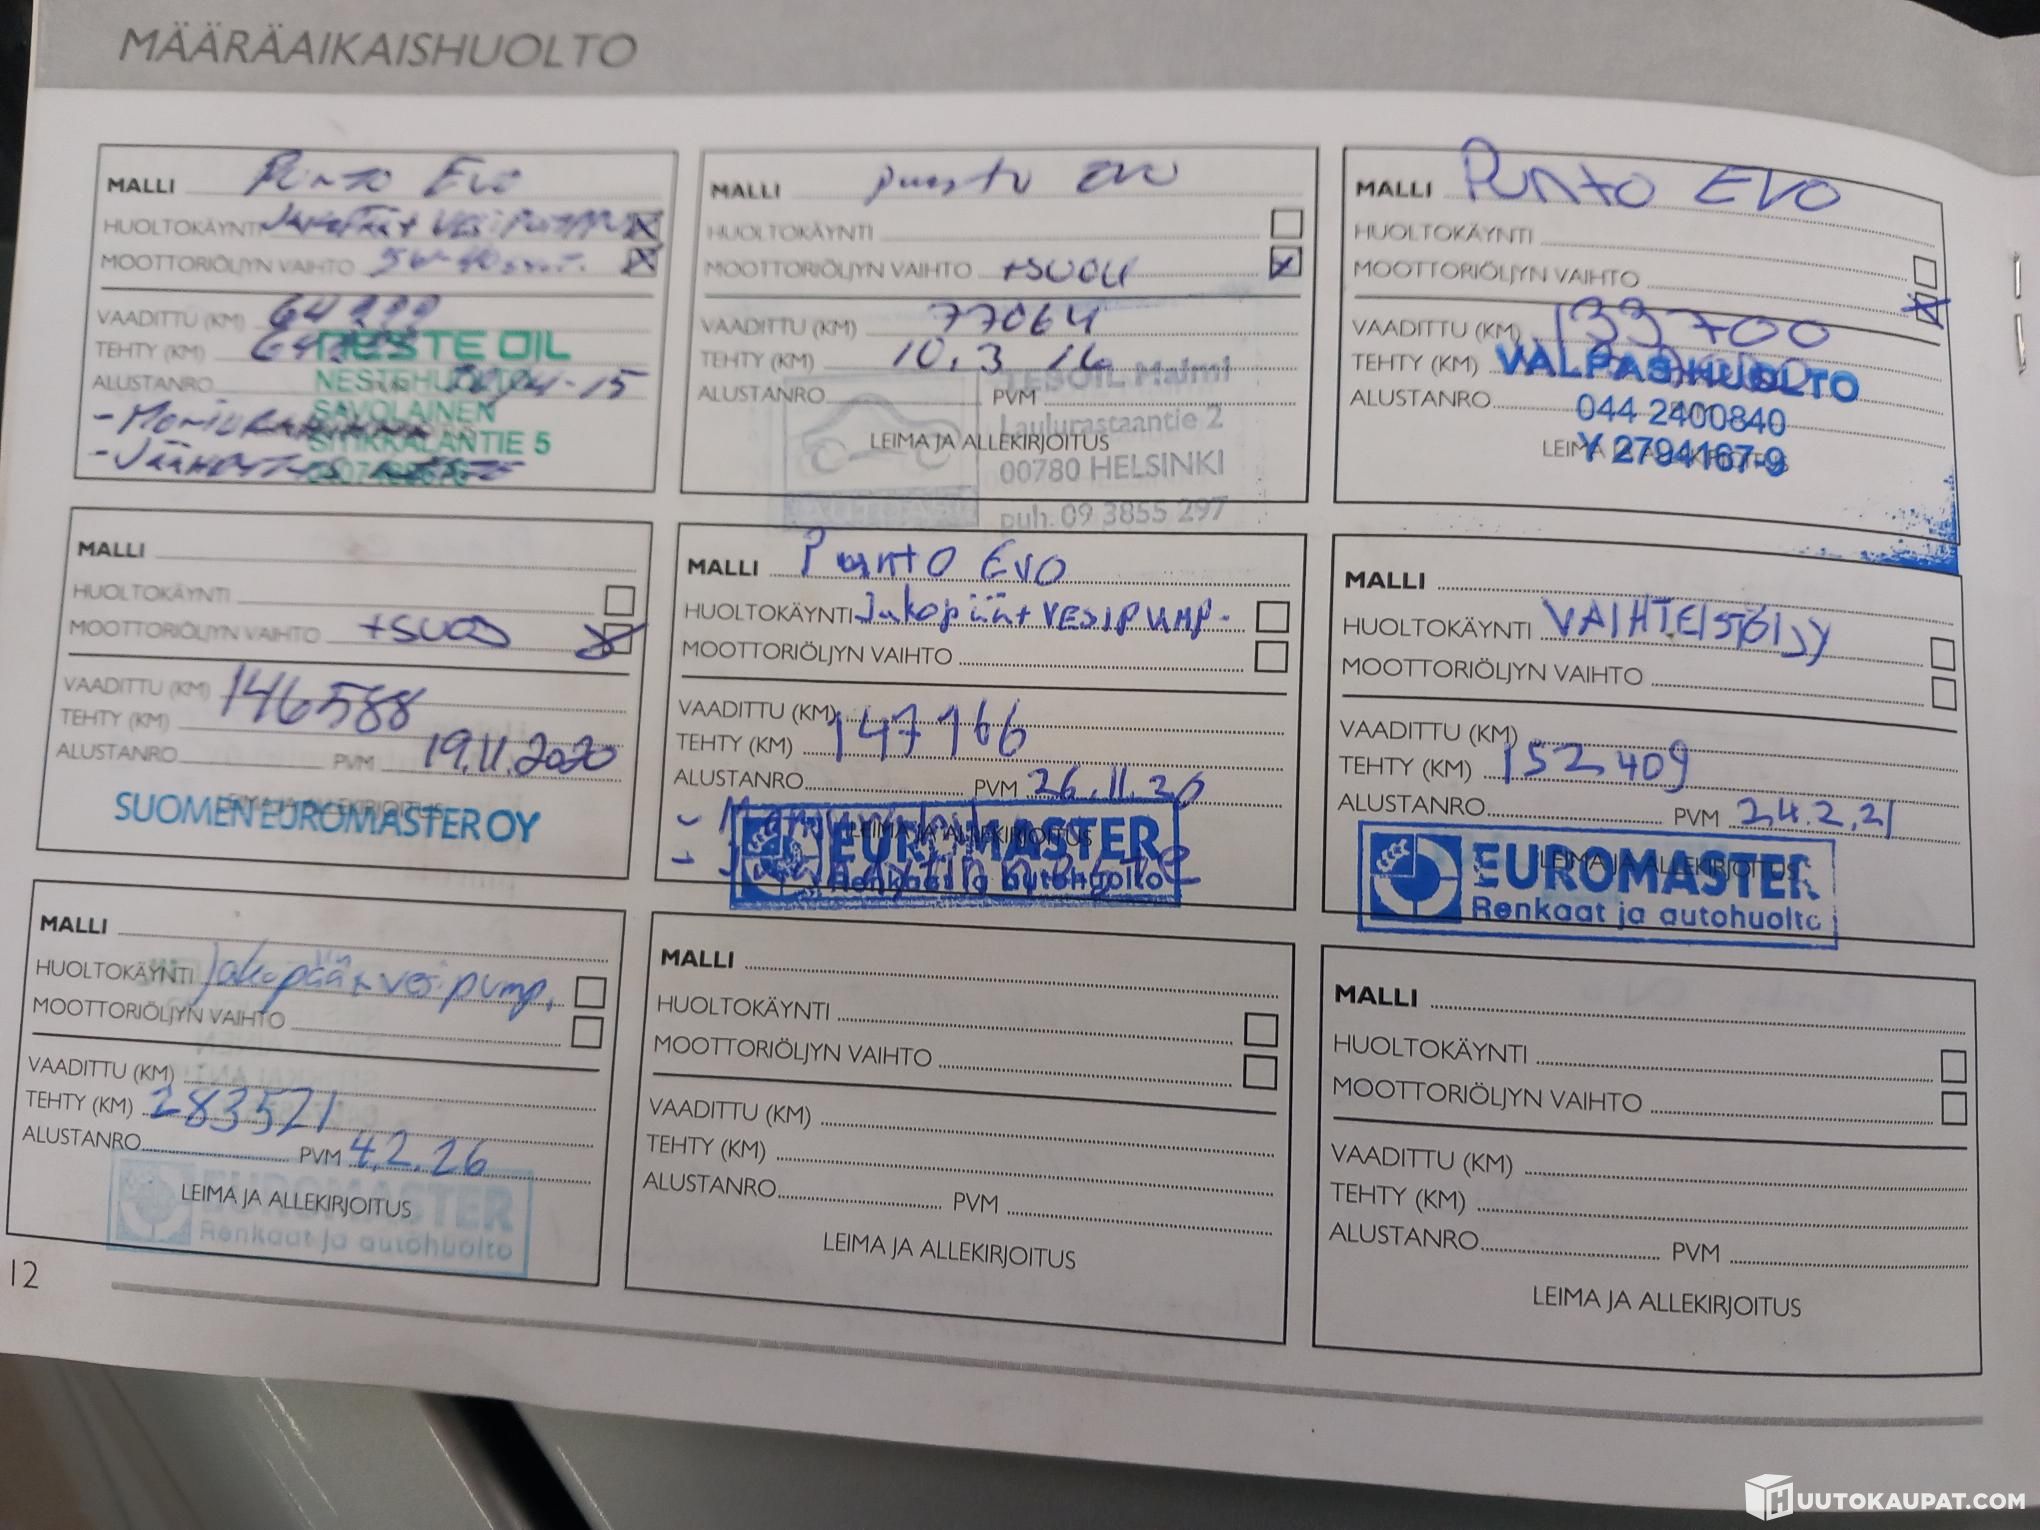 MÄÄRÄAIKAISHUOLTO
MALLI Punto Evo
HUOLTOKÄYNTI Jakopää+ vesipumppu
MOOTTORIÖLJYN VAIHTO
VAADITTU (KM)
TEHTY (KM)
ALUSTANRO -15
NESTE OIL
SAVOLAINEN
SITIKKALANTIE 5
MALLI punto evo
HUOLTOKÄYNTI
MOOTTORIÖLJYN VAIHTO +SUOD
VAADITTU (KM) 77064
TEHTY (KM) 10.3 16
ALUSTANRO PVM
LEIMA JA ALLEKIRJOITUS
TESOIL Malmi
Laulurastaantie 2
00780 HELSINKI
puh. 09 3855 297
MALLI Punto EVO
HUOLTOKÄYNTI
MOOTTORIÖLJYN VAIHTO
VAADITTU (KM) 133700
TEHTY (KM)
ALUSTANRO
VALPAS HUOLTO
044 2400840
Y 2794167-9
MALLI
HUOLTOKÄYNTI
MOOTTORIÖLJYN VAIHTO +SUOD
VAADITTU (KM) 146588
TEHTY (KM)
ALUSTANRO PVM 19.11.2020
LEIMA JA ALLEKIRJOITUS
SUOMEN EUROMASTER OY
MALLI Punto Evo
HUOLTOKÄYNTI Jakopää+ VESIPUMP.
MOOTTORIÖLJYN VAIHTO
VAADITTU (KM)
TEHTY (KM) 147166
ALUSTANRO PVM 26.11.20
LEIMA JA ALLEKIRJOITUS
EUROMASTER
Renkaat ja autohuolto
MALLI
HUOLTOKÄYNTI VAIHTEISTÖLJY
MOOTTORIÖLJYN VAIHTO
VAADITTU (KM)
TEHTY (KM) 152409
ALUSTANRO PVM 24.2.21
LEIMA JA ALLEKIRJOITUS
EUROMASTER
Renkaat ja autohuolto
MALLI
HUOLTOKÄYNTI Jakopää + vesipump.
MOOTTORIÖLJYN VAIHTO
VAADITTU (KM)
TEHTY (KM) 283521
ALUSTANRO PVM 4.2.26
LEIMA JA ALLEKIRJOITUS
EUROMASTER
Renkaat ja autohuolto
MALLI
HUOLTOKÄYNTI
MOOTTORIÖLJYN VAIHTO
VAADITTU (KM)
TEHTY (KM)
ALUSTANRO PVM
LEIMA JA ALLEKIRJOITUS
MALLI
HUOLTOKÄYNTI
MOOTTORIÖLJYN VAIHTO
VAADITTU (KM)
TEHTY (KM)
ALUSTANRO PVM
LEIMA JA ALLEKIRJOITUS
12
HUUTOKAUPAT.COM